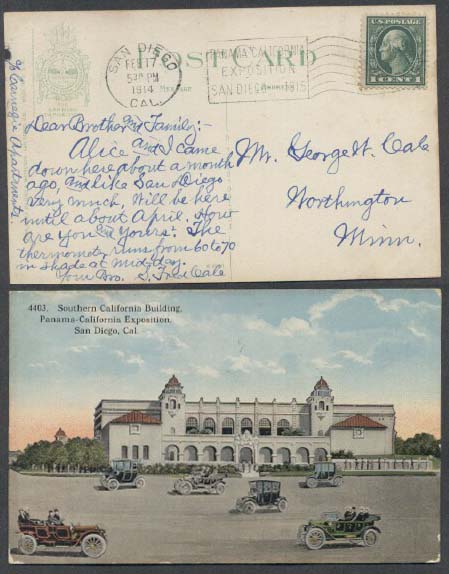 POST CARD
SAN DIEGO
FEB 17
5 30 PM
1914
CAL.
PANAMA CALIFORNIA
EXPOSITION
SAN DIEGO 1915
U.S. POSTAGE
1 CENT 1
MESSAGE
% Carnegie Apartments.
Dear Brother and Family:-
Alice and I came
down here about a month
ago, and like San Diego
very much, Will be here
until about April. How
are you and yours. The
thermometer runs from 60 to 70
in shade at mid-day.
Your Bro. S. Cale
Mr. George W. Cale
Worthington
Minn.
4403. Southern California Building,
Panama-California Exposition,
San Diego, Cal.